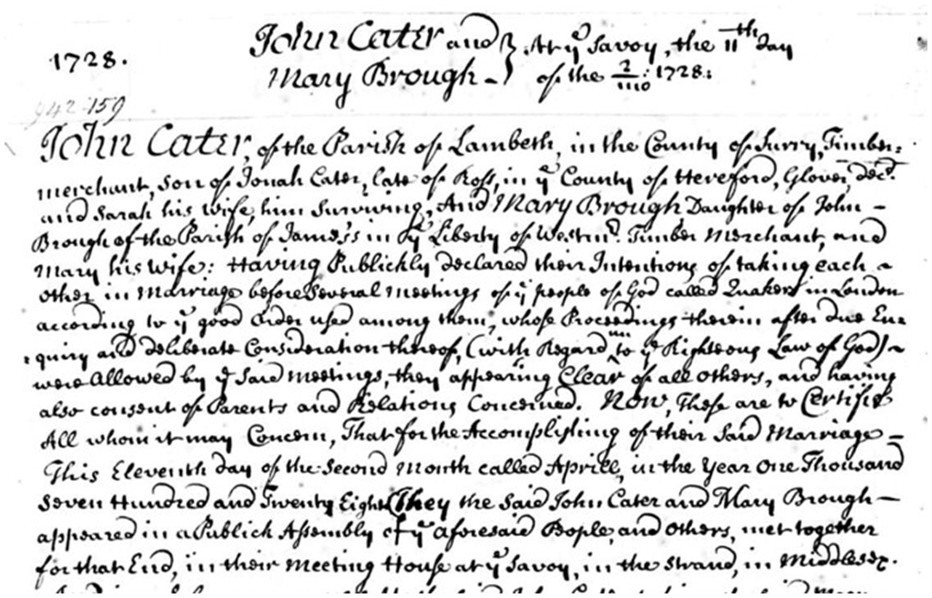 1728.
John Cater and } At yͤ Savoy, the 11th day
Mary Brough - } of the 2/mo: 1728:
942 159
John Cater, of the Parish of Lambeth, in the County of Surry, Timber=
merchant, Son of Jonah Cater, late of Ross, in yͤ County of Hereford, Glover, decd.
and Sarah his wife him Surviving, And Mary Brough Daughter of John -
Brough of the Parish of James's in yͤ Liberty of Westmr. Timber Merchant, and
Mary his Wife: Having Publickly declared their Intentions of taking each -
other in Marriage before Several Meetings of yͤ people of God called Quakers in London
according to yͤ good Order used among them, whose Proceedings therein after due En=
=quiry and deliberate Consideration thereof, (with Regard unto yͤ Righteous Law of God) -
were allowed by yͤ Said Meetings, they appearing Clear of all others, and having
also consent of Parents and Relations Concerned. Now, These are to Certifie
All whom it may Concern, That for the Accomplishing of their Said Marriage -
This Eleventh day of the Second Month called Aprill, in the Year One Thousand
Seven Hundred and Twenty Eight (They the Said John Cater and Mary Brough -
appeared in a Publick Assembly of yͤ aforesaid People, and Others, met together
for that End, in their Meeting House at yͤ Savoy, in the Strand, in Middlesex.